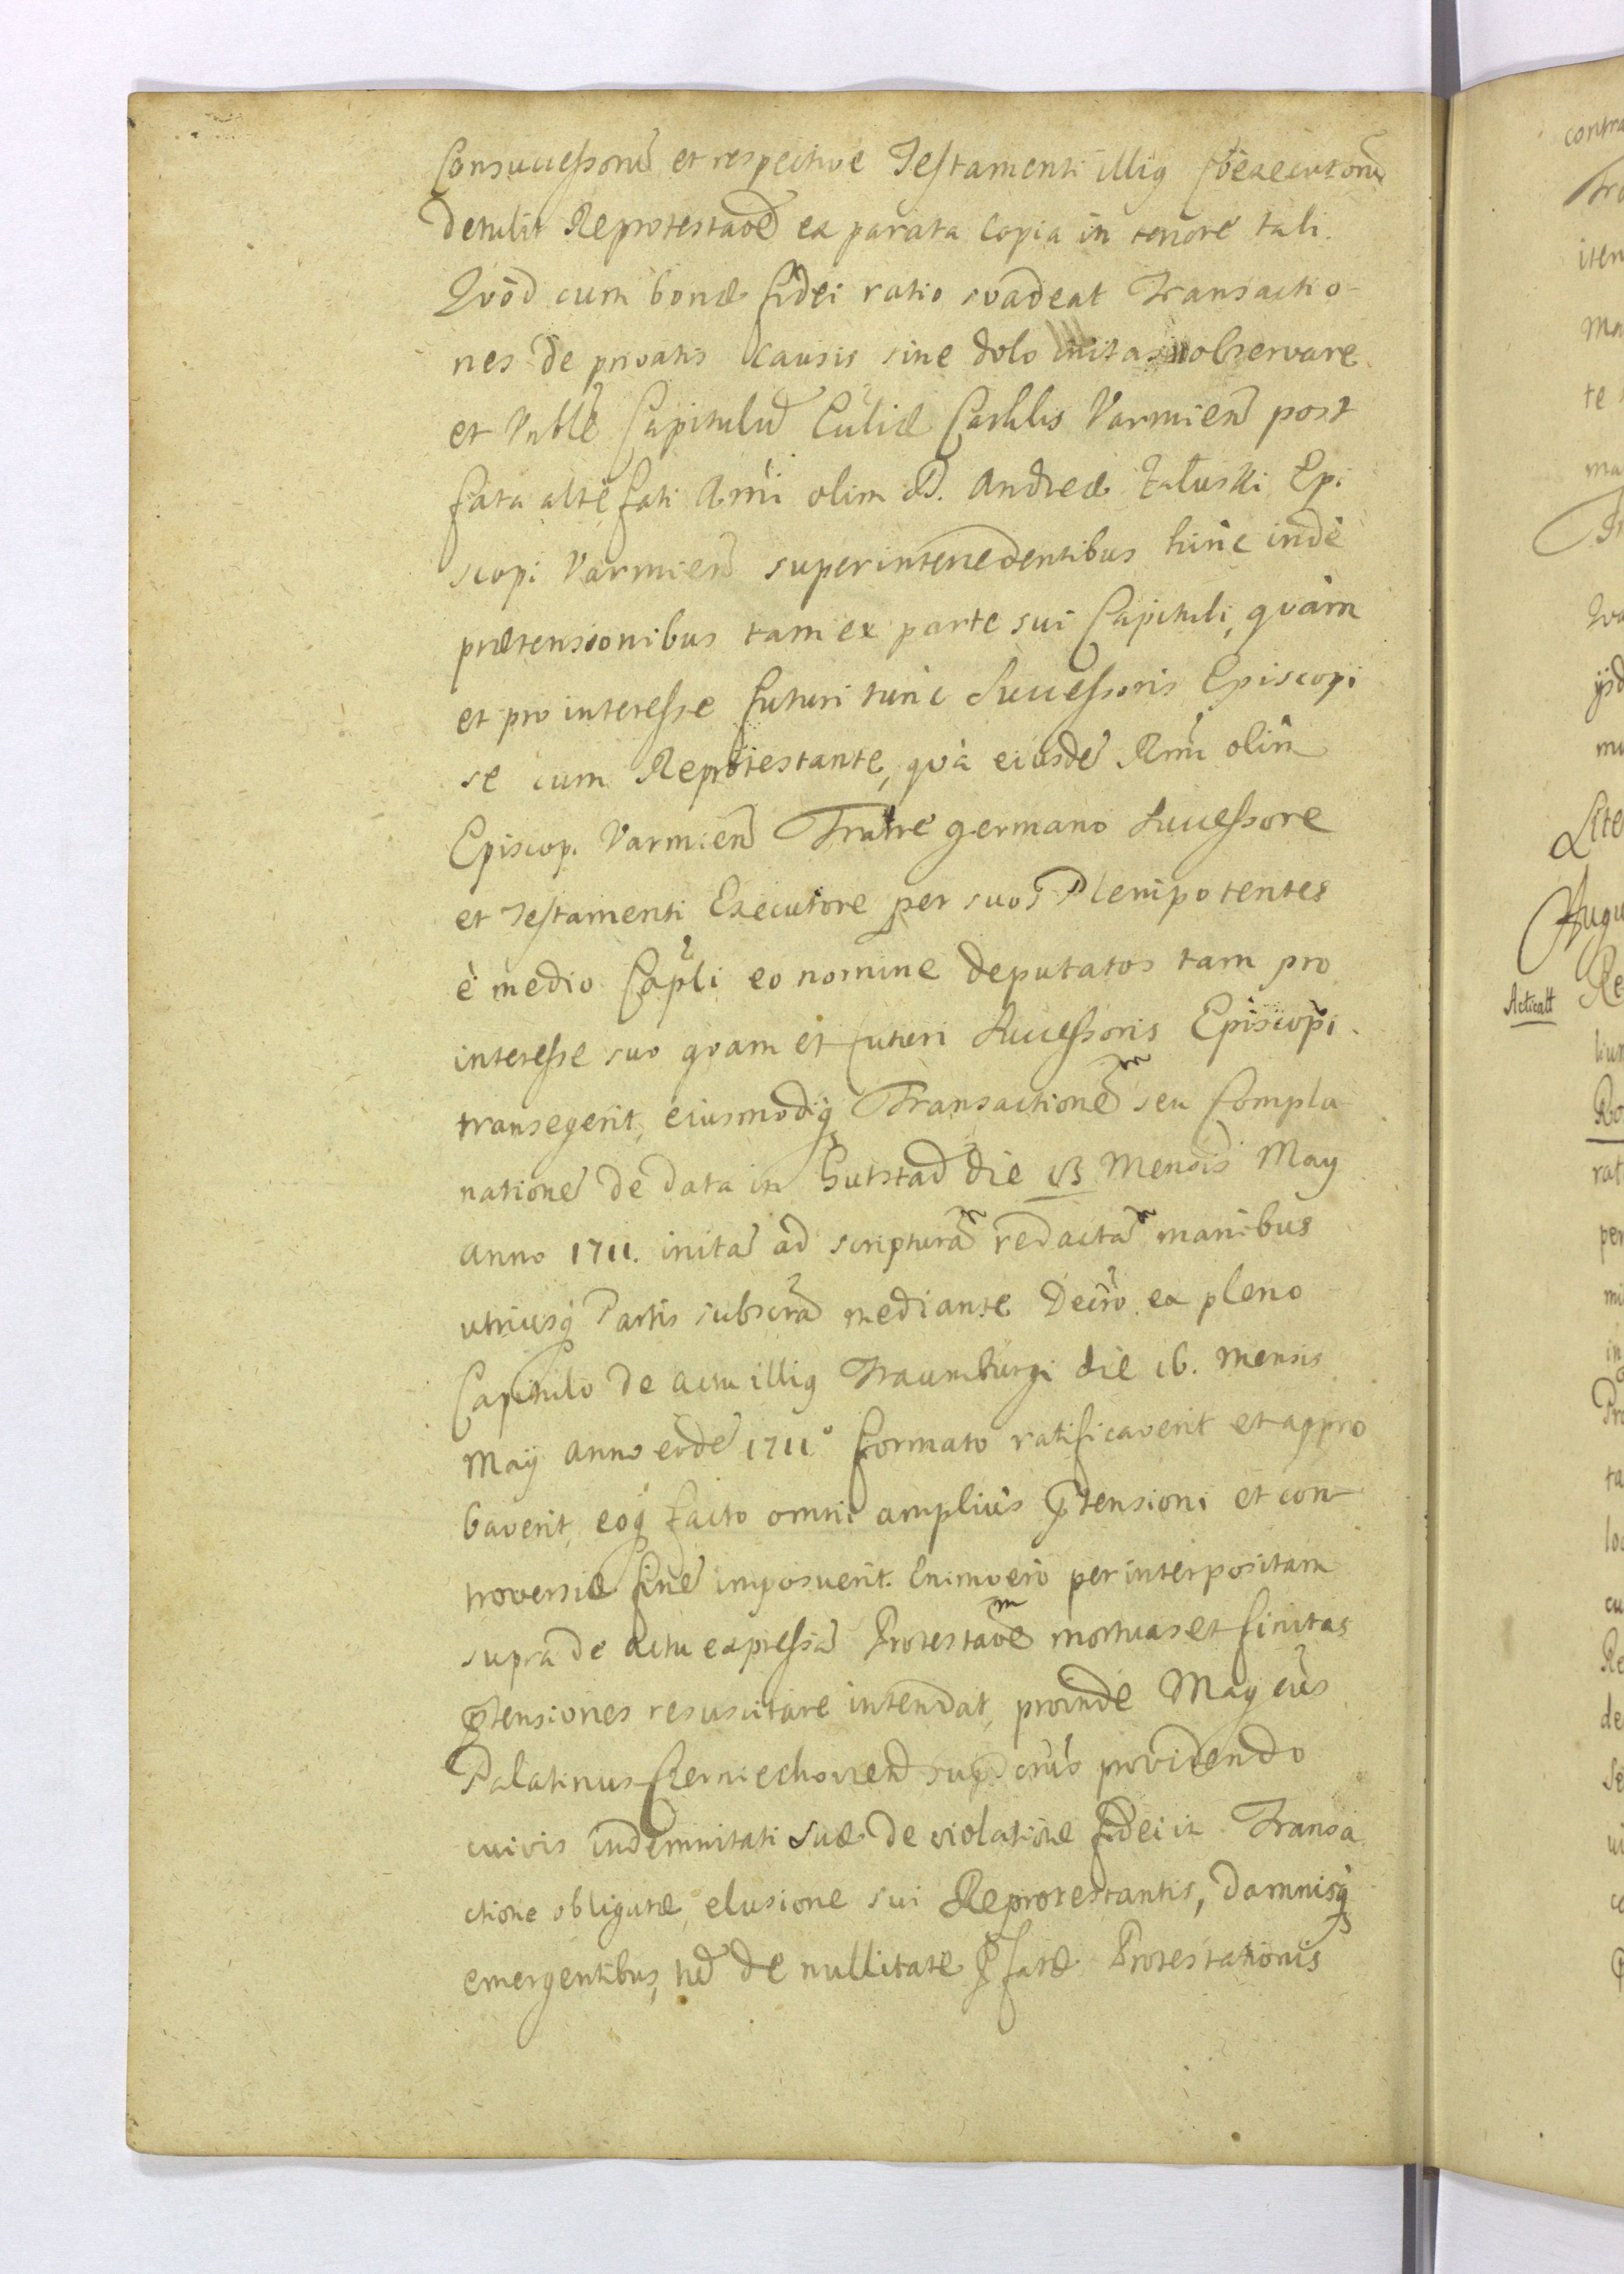 Consuccessorū et respective Testamenti illiq Coexecutorū
detulit Reprotestaoē ex parata Copia in tenore tali.
Qvòd cum bonæ fidei ratio svadeat Transactio-
nes de privatis Causis sine dolo initas observare
et Vnble Capitulū Ccliæ Cathlis Varmień post
fata altè fati Rmi olim D. Andreæ Załuski Epi
scopi Varmień superintenedentibus hinc indè
prætensionibus tam ex parte sui Capituli, qvàm
et pro interesse futuri tunc Successoris Episcopi
se cum Reprotestante, qvà eiusdē Rmi olim
Episcop. Varmień Fratre germano Successore
et Testamenti Executore per suos Plenipotentes
è medio Capli eo nomine deputatos tam pro
interesse suo qvam et futuri Successoris Episcopi
transegerit, eiusmodiq Transactionem seu Compla
nationē de data in Gutstad die 13 Mensis May
anno 1711. initā ad scripturam redactam manibus
utriusq Partis subscrā mediante Decro ex pleno
Capitulo de actu illiq Fraumburgi die 16. mensis
Maÿ anno eodē 1711° formato ratificaverit et appro
baverit, eoq facto omni ampliùs prtensioni et con-
troversiæ finē imposuerit. Enimverò per interpositam
supra de actu expressā Protestaoem mortuas et finitas
prtensiones resuscitare intendat, proinde Mag cus
Palatinus Czerniechovień providendo
cuivis indemnitati suæ de violatione fidei in Transa
ctione obligatæ, elusione sui Reprotestantis, damnisq
emergentibus, nec de nullitate prfatæ Protestationis
Acticatt